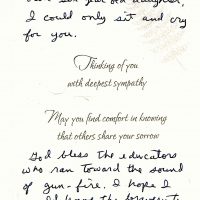 year old daughter,
I could only sit and cry
for you.
Thinking of you
with deepest sympathy
May you find comfort in knowing
that others share your sorrow
God bless the educators
who ran toward the sound
of gun-fire. I hope I